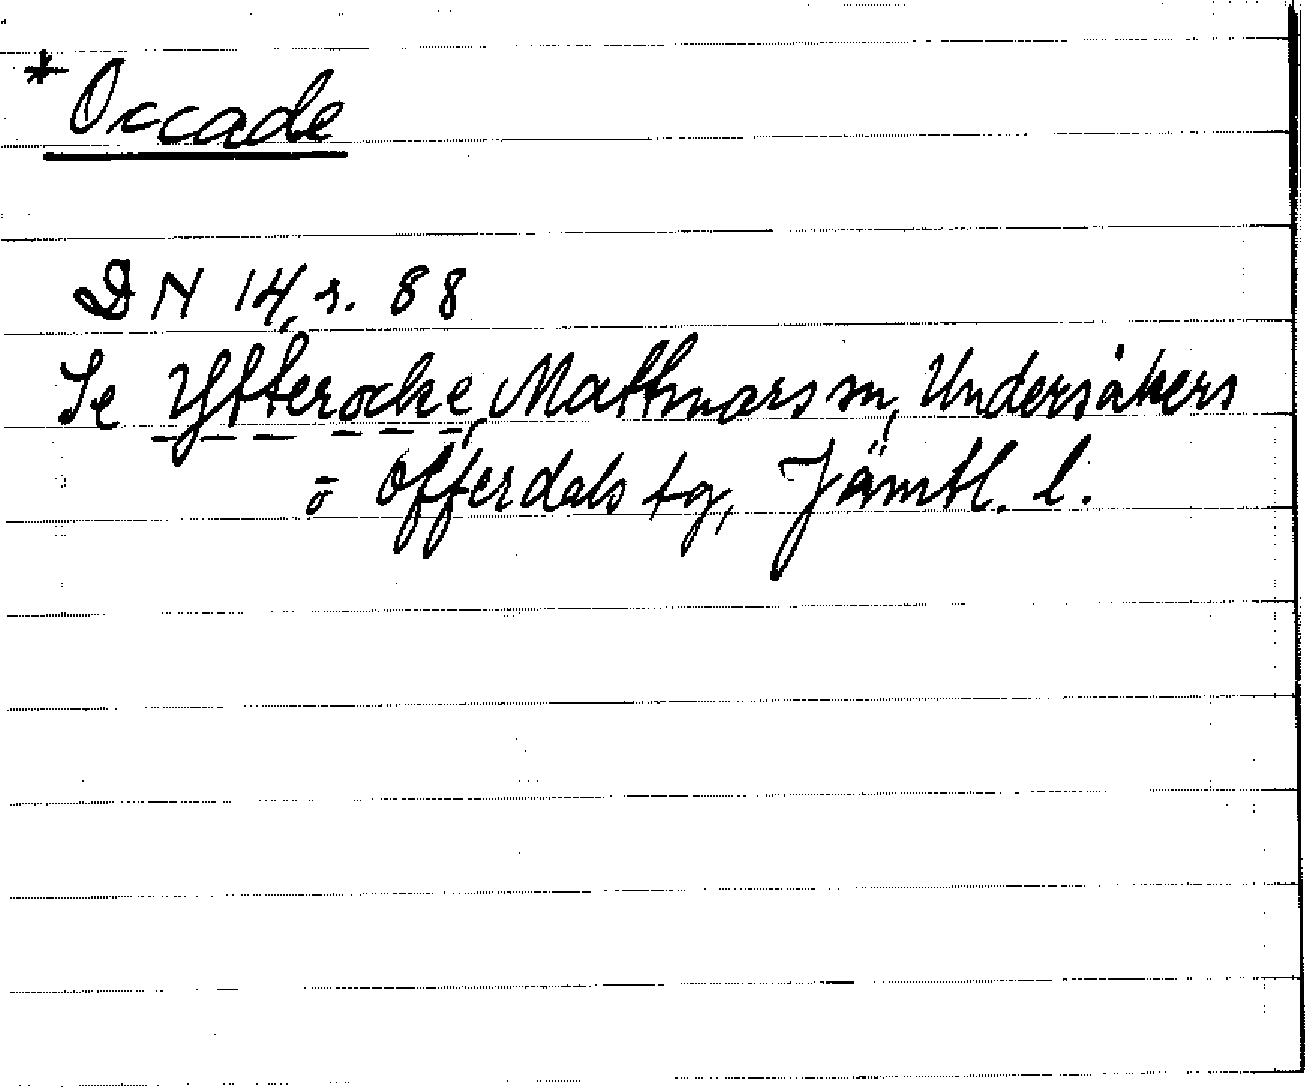 * Occade
DN 14, s. 88
Se Ytterocke, Mattmars sn, Undersåkers
o Offerdals tg, Jämtl. l.